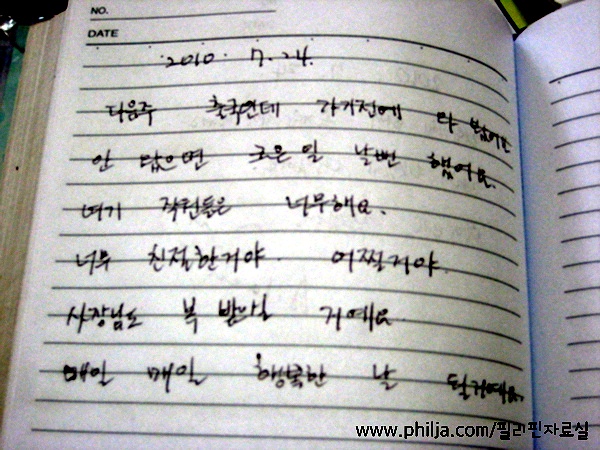 NO.
DATE
2010. 7. 24.
다음주 출국인데 가기전에 다
안 일 날뻔 했어요.
여기 직원들은 너무해요.
너무 친절한거야. 어쩔거야.
사장님도 복 거예요.
매일 매일 행복한 날 될거예요.
www.philja.com/필리핀자료실